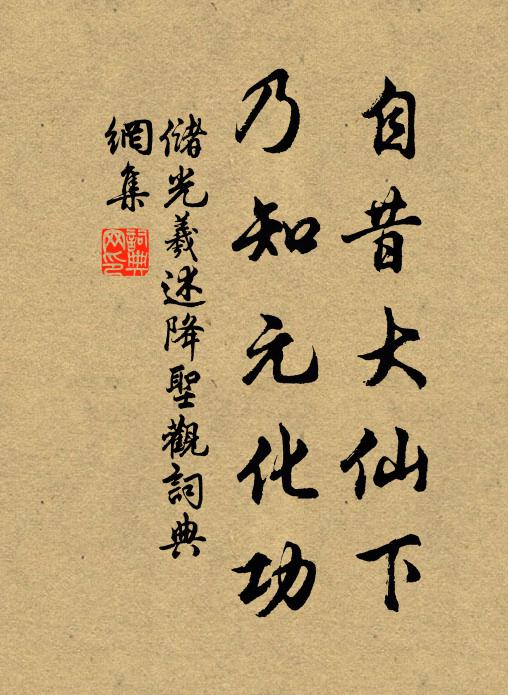 自昔大仙下
乃知元化功
儲光羲述降聖觀詞典
網集
詞典網印